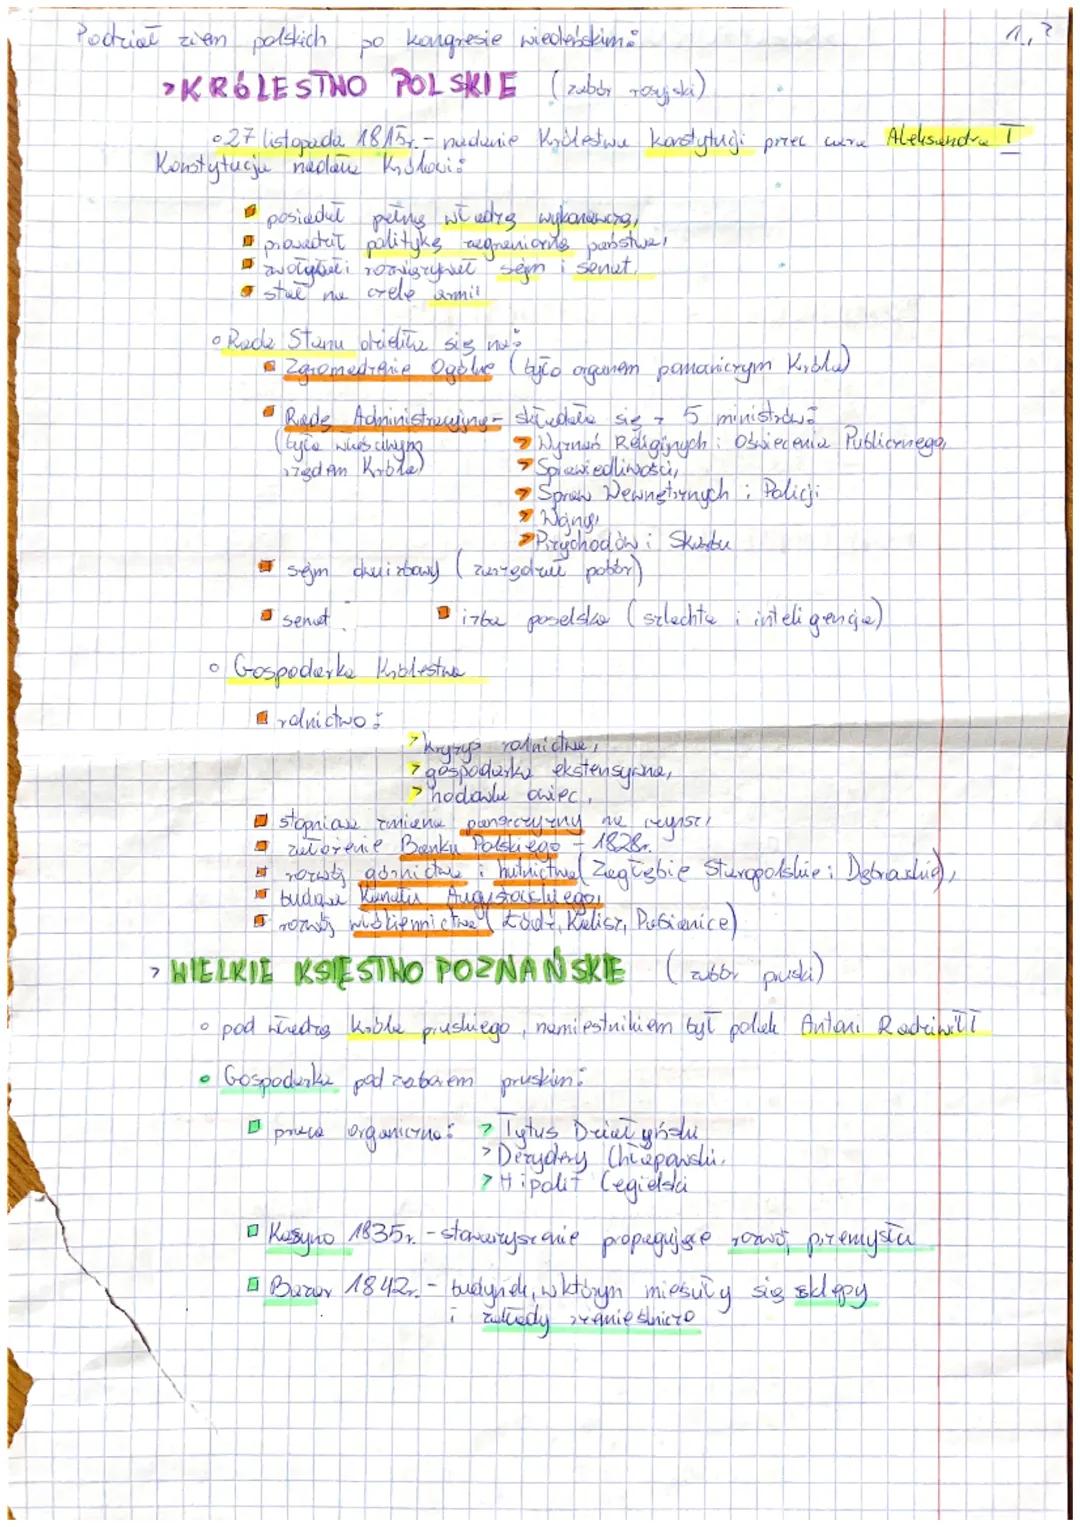 Podział ziem polskich po kongresie wiedeńskim:
1.,2
>KRÓLESTWO POLSKIE (zabór rosyjski)
27 listopada 1815r. - nadanie Królestwu konstytucji przez cara Aleksandra I
Konstytucja nadała Królowi:
posiadał pełną władzę wykonawczą,
prowadził politykę zagraniczną państwa,
zwoływał i rozwiązywał sejm i senat.
stał na czele armii
Rada Stanu dzieliła się na:
Zgromadzenie Ogólne (było organem pomocniczym Króla)
Radę Administracyjną - składała się z 5 ministrów:
(była właściwym > Wyznań Religijnych i Oświecenia Publicznego,
rządem Króla) > Sprawiedliwości,
> Spraw Wewnętrznych i Policji
> Wojny,
> Przychodów i Skarbu
sejm dwuizbowy (zarządzał pobór)
senat izba poselska (szlachta i inteligencja)
Gospodarka Królestwa
rolnictwo:
> kryzys rolnictwa,
> gospodarka ekstensywna,
> hodowla owiec,
stopniowa zmiana pańszczyzny na czynsz,
założenie Banku Polskiego - 1828r.
rozwój górnictwa i hutnictwa (Zagłębie Staropolskie i Dąbrowskie),
budowa Kanału Augustowskiego,
rozwój włókiennictwa (Łódź, Kalisz, Pabianice)
> WIELKIE KSIĘSTWO POZNAŃSKIE (zabór pruski)
pod władzą króla pruskiego, namiestnikiem był polak Antoni Radziwiłł
Gospodarka pod zaborem pruskim:
praca organiczna: > Tytus Działyński
> Dezydery Chłapowski.
> Hipolit Cegielski
Kasyno 1835r. - stowarzyszenie propagujące rozwój przemysłu
Bazar 1842r. - budynek, w którym mieściły się sklepy
i zakłady rzemieślnicze